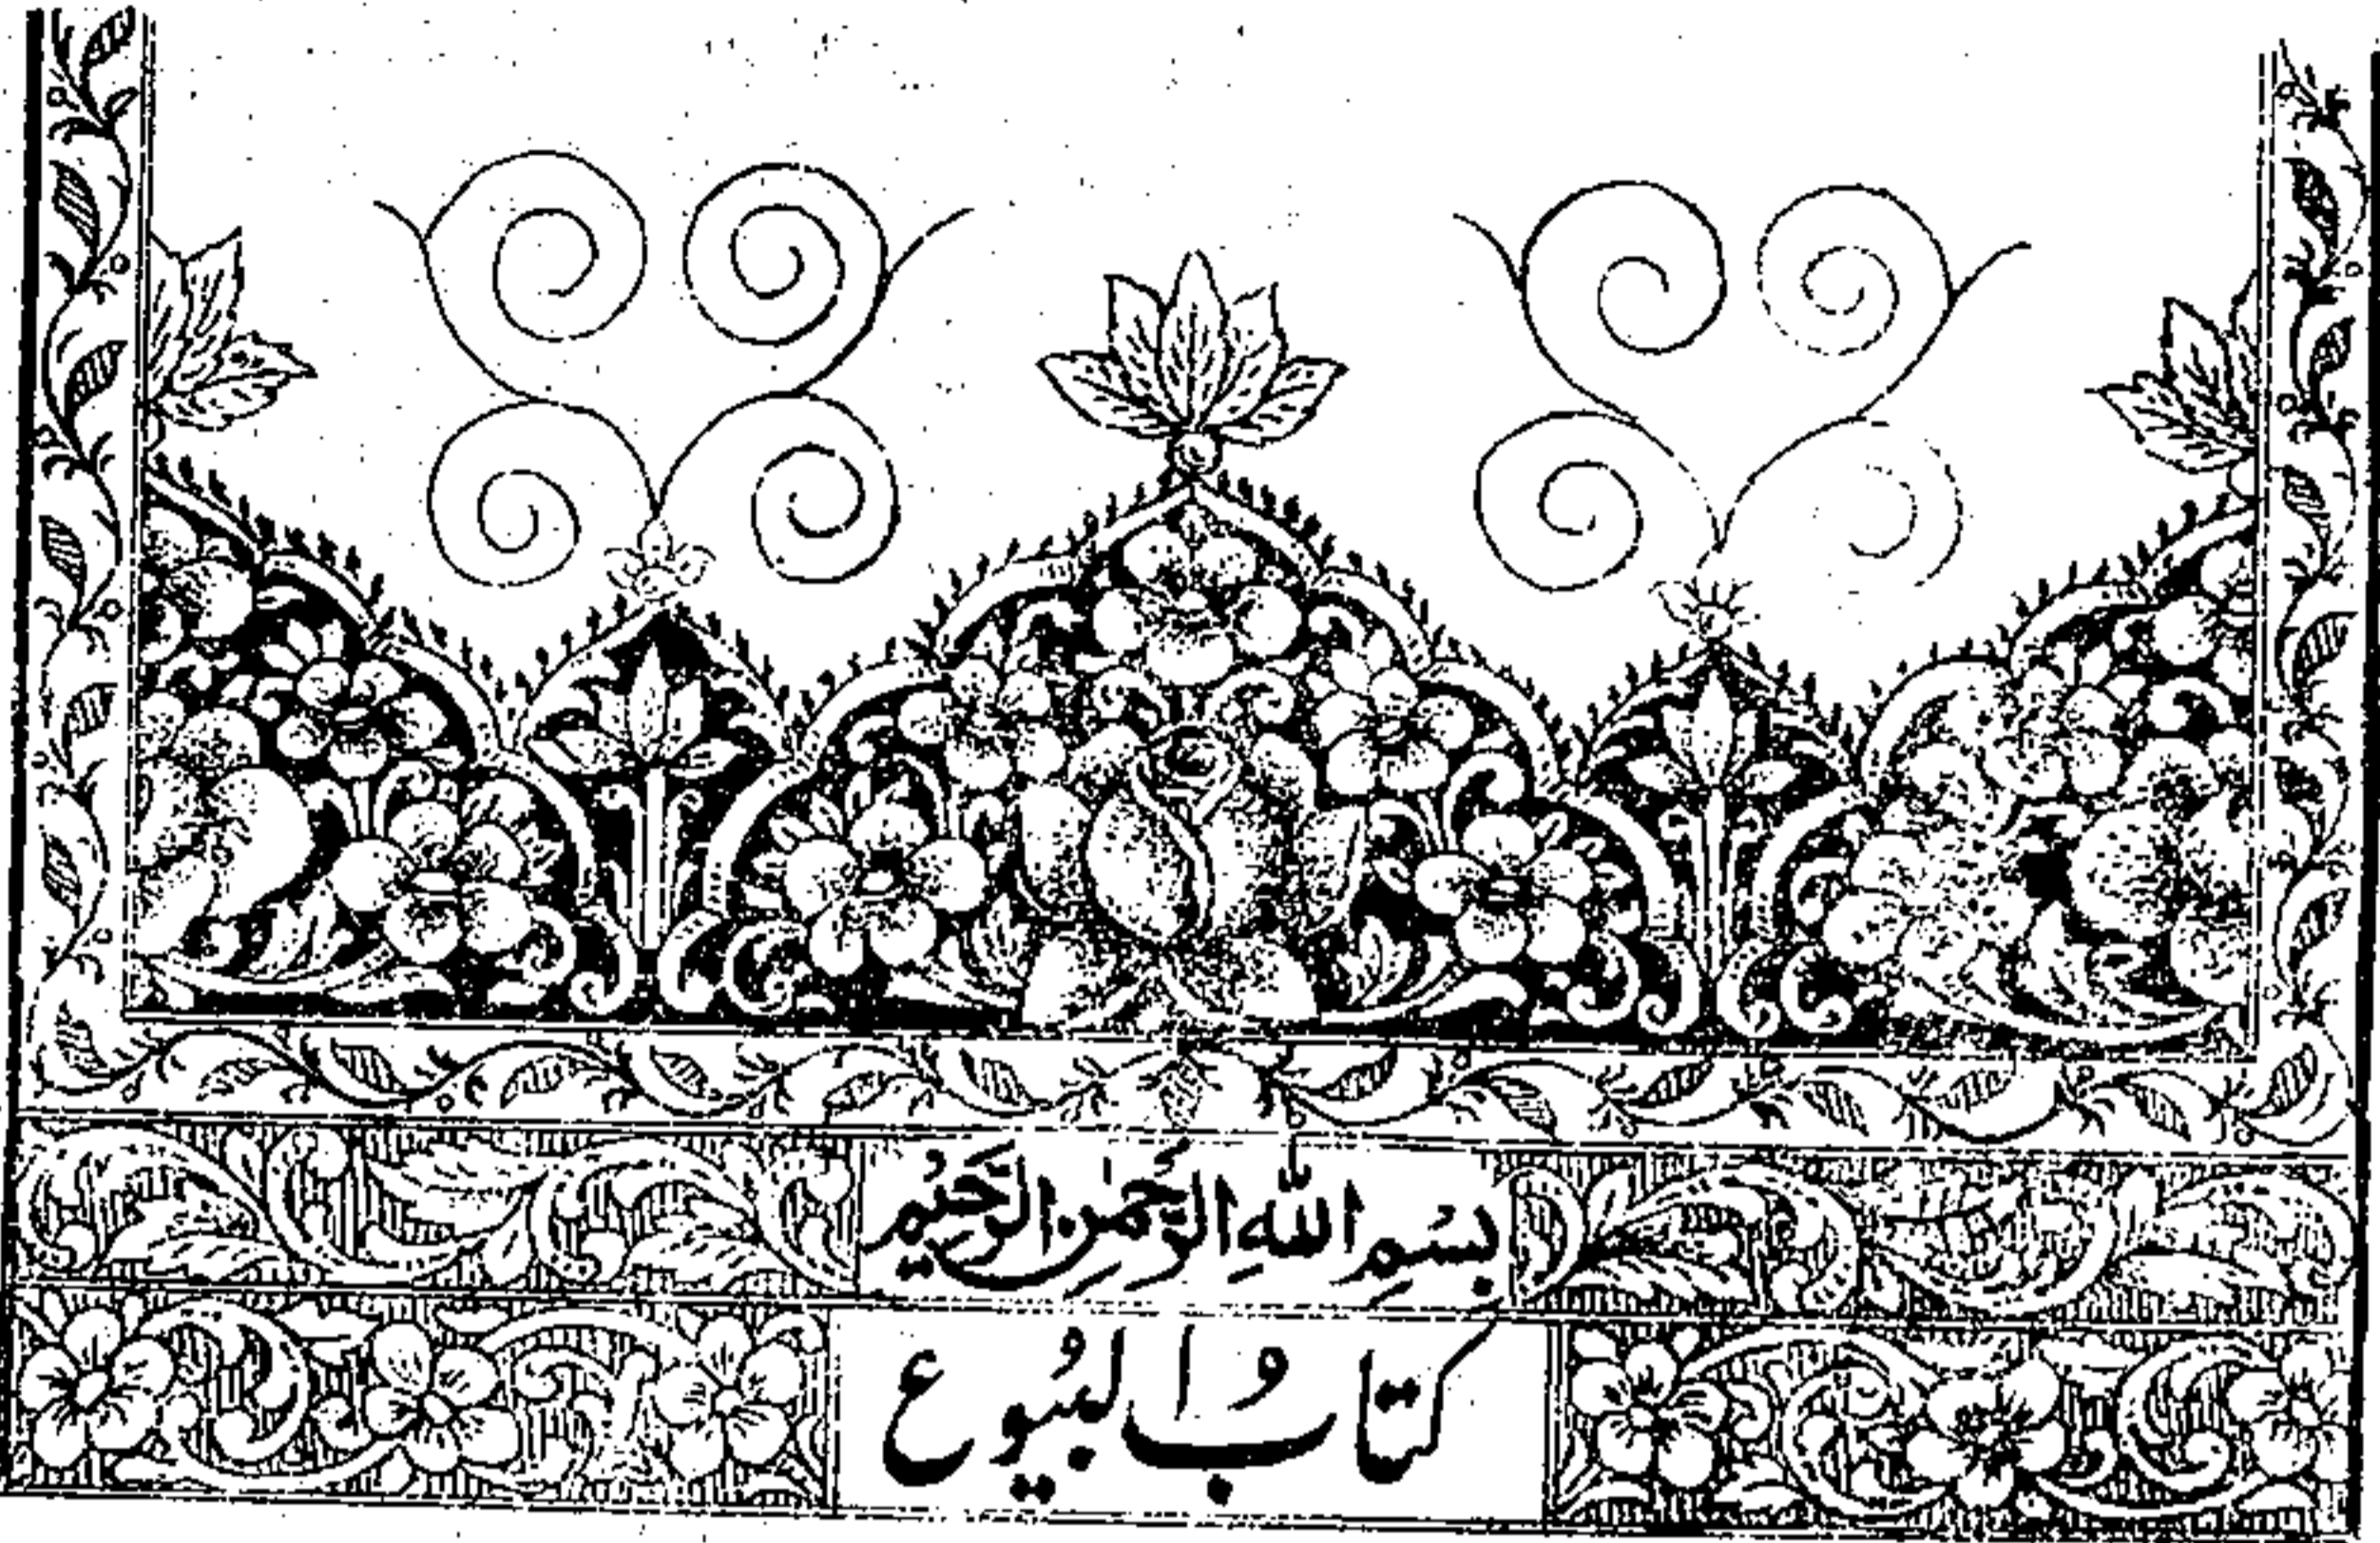 بِسْمِ اللّٰهِ الرَّحْمٰنِ الرَّحِيْمِ
كتَابُ البُيُوع